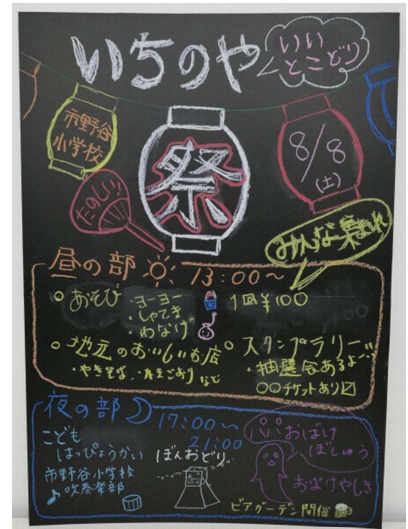 いちのや
いい
とこどり
市野谷
小学校
祭
8/8
(土)
たのしい
みんな集まれ
昼の部 13:00～
あそび ・ヨーヨー 1回¥100
・しゃてき
・わなげ
地元のおいしいお店
・やきそば ・たまごありなど
スタンプラリー
・抽選会あるよ
○○チケットあり
夜の部 17:00～
21:00
こども
はっぴょうかい
市野谷小学校
吹奏楽部
ぼんおどり
パパおばけ
ぼしゅう
おばけやしき
ビアガーデン開催